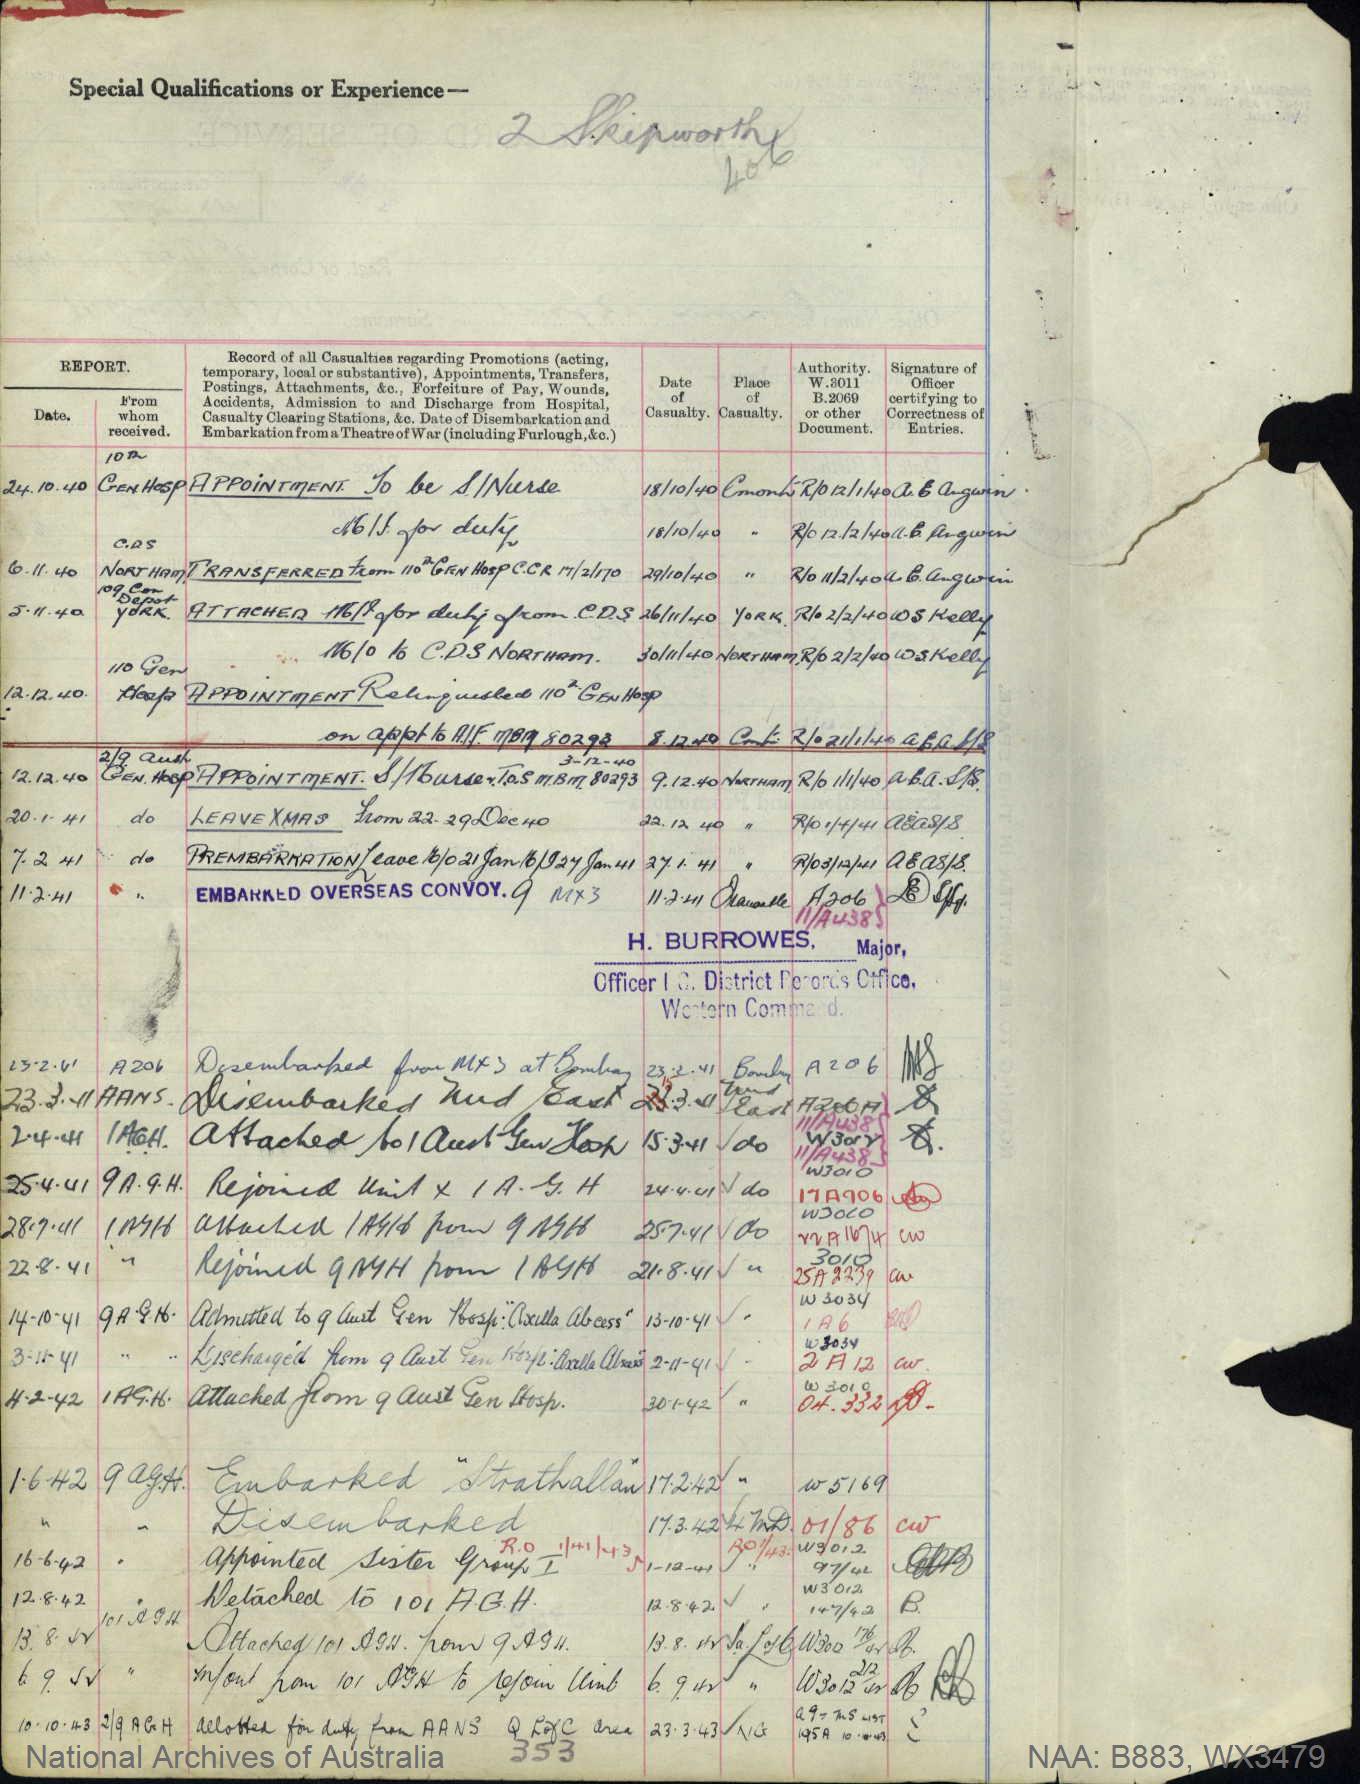 Special Qualifications or Experience—
2 Skipworth
406
REPORT.
Date.
From whom received.
Record of all Casualties regarding Promotions (acting,
temporary, local or substantive), Appointments, Transfers,
Postings, Attachments, &c., Forfeiture of Pay, Wounds,
Accidents, Admission to and Discharge from Hospital,
Casualty Clearing Stations, &c. Date of Disembarkation and
Embarkation from a Theatre of War (including Furlough, &c.)
Date of Casualty.
Place of Casualty.
Authority. W.3011 B.2069 or other Document.
Signature of Officer certifying to Correctness of Entries.
10th
24.10.40 GEN. HOSP APPOINTMENT To be S/Nurse 18/10/40 R/O 12/1/40 A. E. Angwin
M/I for duty 18/10/40 " R/O 12/2/40 A. E. Angwin
C.D.S
6.11.40 NORTHAM TRANSFERRED from 110th GEN HOSP C.C.R 17/2/170 29/10/40 " R/O 11/2/40 A. E. Angwin
109 Con Depot
5.11.40 YORK. ATTACHED M/I for duty from C.D.S 26/11/40 YORK. R/O 2/2/40 W S Kelly
M/O to C.D.S NORTHAM. 30/11/40 NORTHAM R/O 2/2/40 W. S. Kelly
110 Gen
12.12.40. Hosp APPOINTMENT Relinquished 110th GEN HOSP
on appt to A.I.F. MBM 80293 8.12.40 R/O 21/1/40 A. E. A. S/S
2/9 Aust 3-12-40
12.12.40 GEN. HOSP APPOINTMENT. S/Nurse T.O.S M.B.M. 80293 9.12.40 NORTHAM R/O 1/1/40 A. E. A. S/S.
20.1.41 do LEAVE XMAS From 22-29 Dec 40 22.12.40 " R/O 1/4/41 A E A S/S.
7.2.41 do PREMBARKATION Leave M/O 21 Jan M/I 27 Jan 41 27.1.41 " R/O 3/12/41 A E A S/S.
11.2.41 " EMBARKED OVERSEAS CONVOY. 9 MX3 11.2.41 A206
11/A438
H. BURROWES, Major,
Officer I C. District Records Office,
Western Command.
23.2.41 A206 Disembarked from MX3 at Bombay 23.2.41 Bombay A206
23.3.41 AANS. Disembarked Mid East 3.41 Mid East A206A
11/A438
2.4.41 1 AGH. Attached to 1 Aust Gen Hosp 15.3.41 do W3012
11/A438
W3010
25.4.41 9 A.G.H. Rejoined Unit x 1 A.G.H 24.4.41 do 17A706
W3010
28.7.41 1 AGH Attached 1 AGH from 9 AGH 25.7.41 do 22A1674 CW
3010
22.8.41 " Rejoined 9 AGH from 1 AGH 21.8.41 " 25A2239 CW
W3034
14-10-41 9 A.G.H. Admitted to 9 Aust Gen Hosp: "Axilla Abcess" 13-10-41 " 1 A 6
W3034
3-11-41 " " Discharged from 9 Aust Gen Hosp: Axilla Abcess 2-11-41 " 2 A 12 CW.
W3010
4-2-42 1 AGH. Attached from 9 Aust Gen Hosp. 30-1-42 " 04.332
1.6.42 9 AGH. Embarked "Strathallan" 17.2.42 " W5169
" " Disembarked 17.3.42 4 M.D. 01/86 CW
R.O 1/41/43 RO 1/43. W3012
16-6-42 " Appointed Sister Group I 1-12-41 " 97/42
W3012
12.8.42 " Detached to 101 A.G.H. 12.8.42 " 147/42 B.
101 AGH
13.8.42 Attached 101 AGH. from 9 AGH. 13.8.42 176/42
6.9.42 " M/out from 101 AGH to rejoin Unit 6.9.42 " W3012 212/42
10.10.43 2/9 AGH Allotted for duty from AANS Q L of C area 23.3.43 NG
353
National Archives of Australia
NAA: B883, WX3479